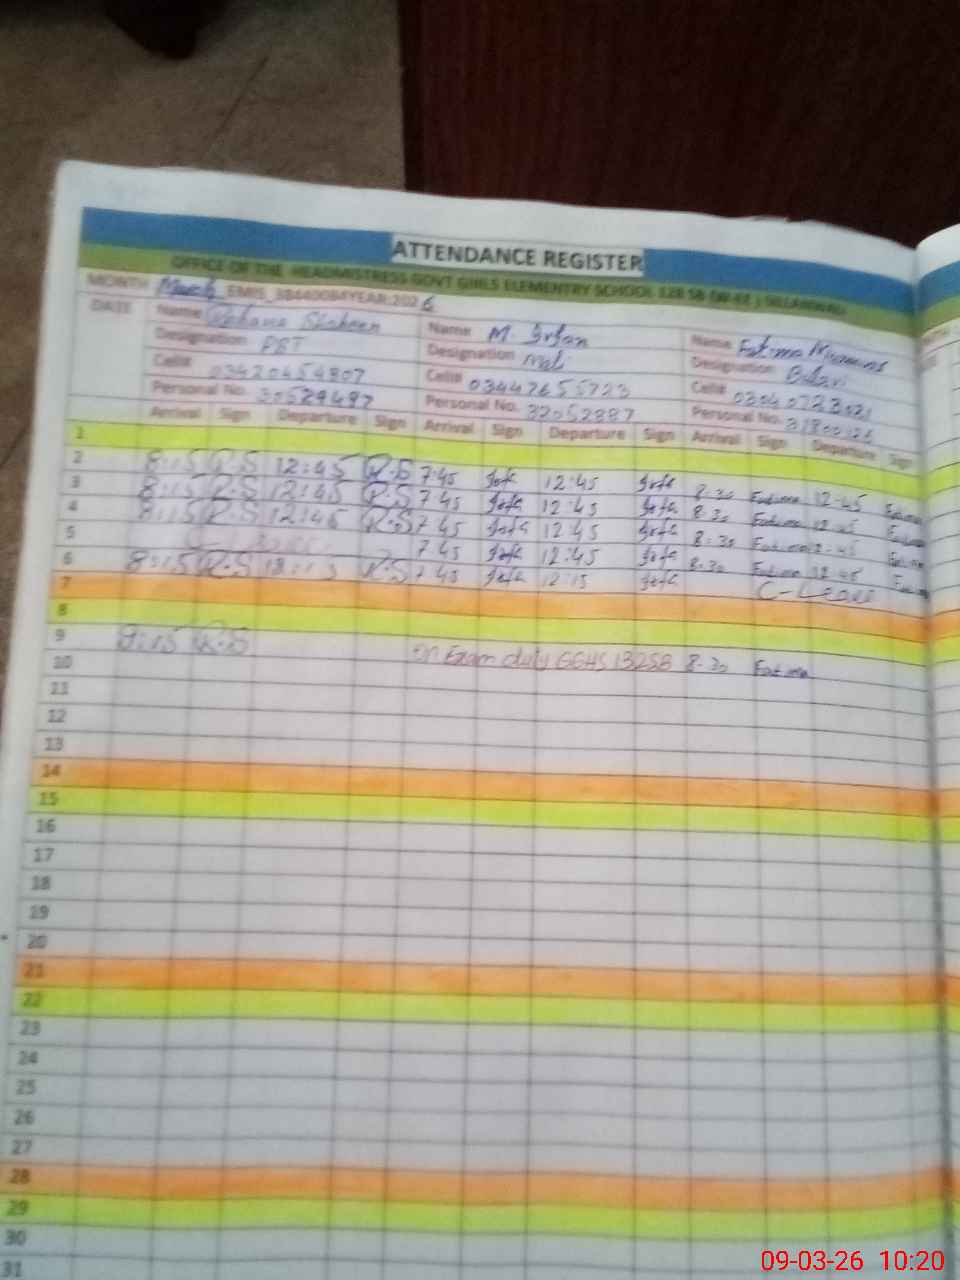 ATTENDANCE REGISTER
OFFICE OF THE HEADMISTRESS GOVT GIRLS ELEMENTRY SCHOOL 128 SB
MONTH March EMIS_38440084YEAR:2026
DATE Name Shaheen Name M. Irfan Name Fatima
Designation PST Designation Mali Designation
Cell# 03420454807 Cell# 03447655723 Cell#
Personal No. Personal No. 32052887 Personal No.
Arrival Sign Departure Sign Arrival Sign Departure Sign Arrival Sign Departure Sign
1
2 8:15 R.S 12:45 R.S 7:45 Irfa 12:45 Irfa 8:30 Fatima 12:45 Fatima
3 8:15 R.S 12:45 R.S 7:45 Irfa 12:45 Irfa 8:30 Fatima 12:45
4 8:15 R.S 12:45 R.S 7:45 Irfa 12:45 Irfa 8:30 Fatima 12:45
5 7:45 Irfa 12:45 Irfa 8:30 Fatima 12:45
6 8:15 R.S R.S 7:45 Irfa 12:15 Irfa C-Leave
7
8
9 8:15 R.S On Exam duty GGHS 132SB 8:30 Fatima
10
11
12
13
14
15
16
17
18
19
20
21
22
23
24
25
26
27
28
29
30
31
09-03-26 10:20